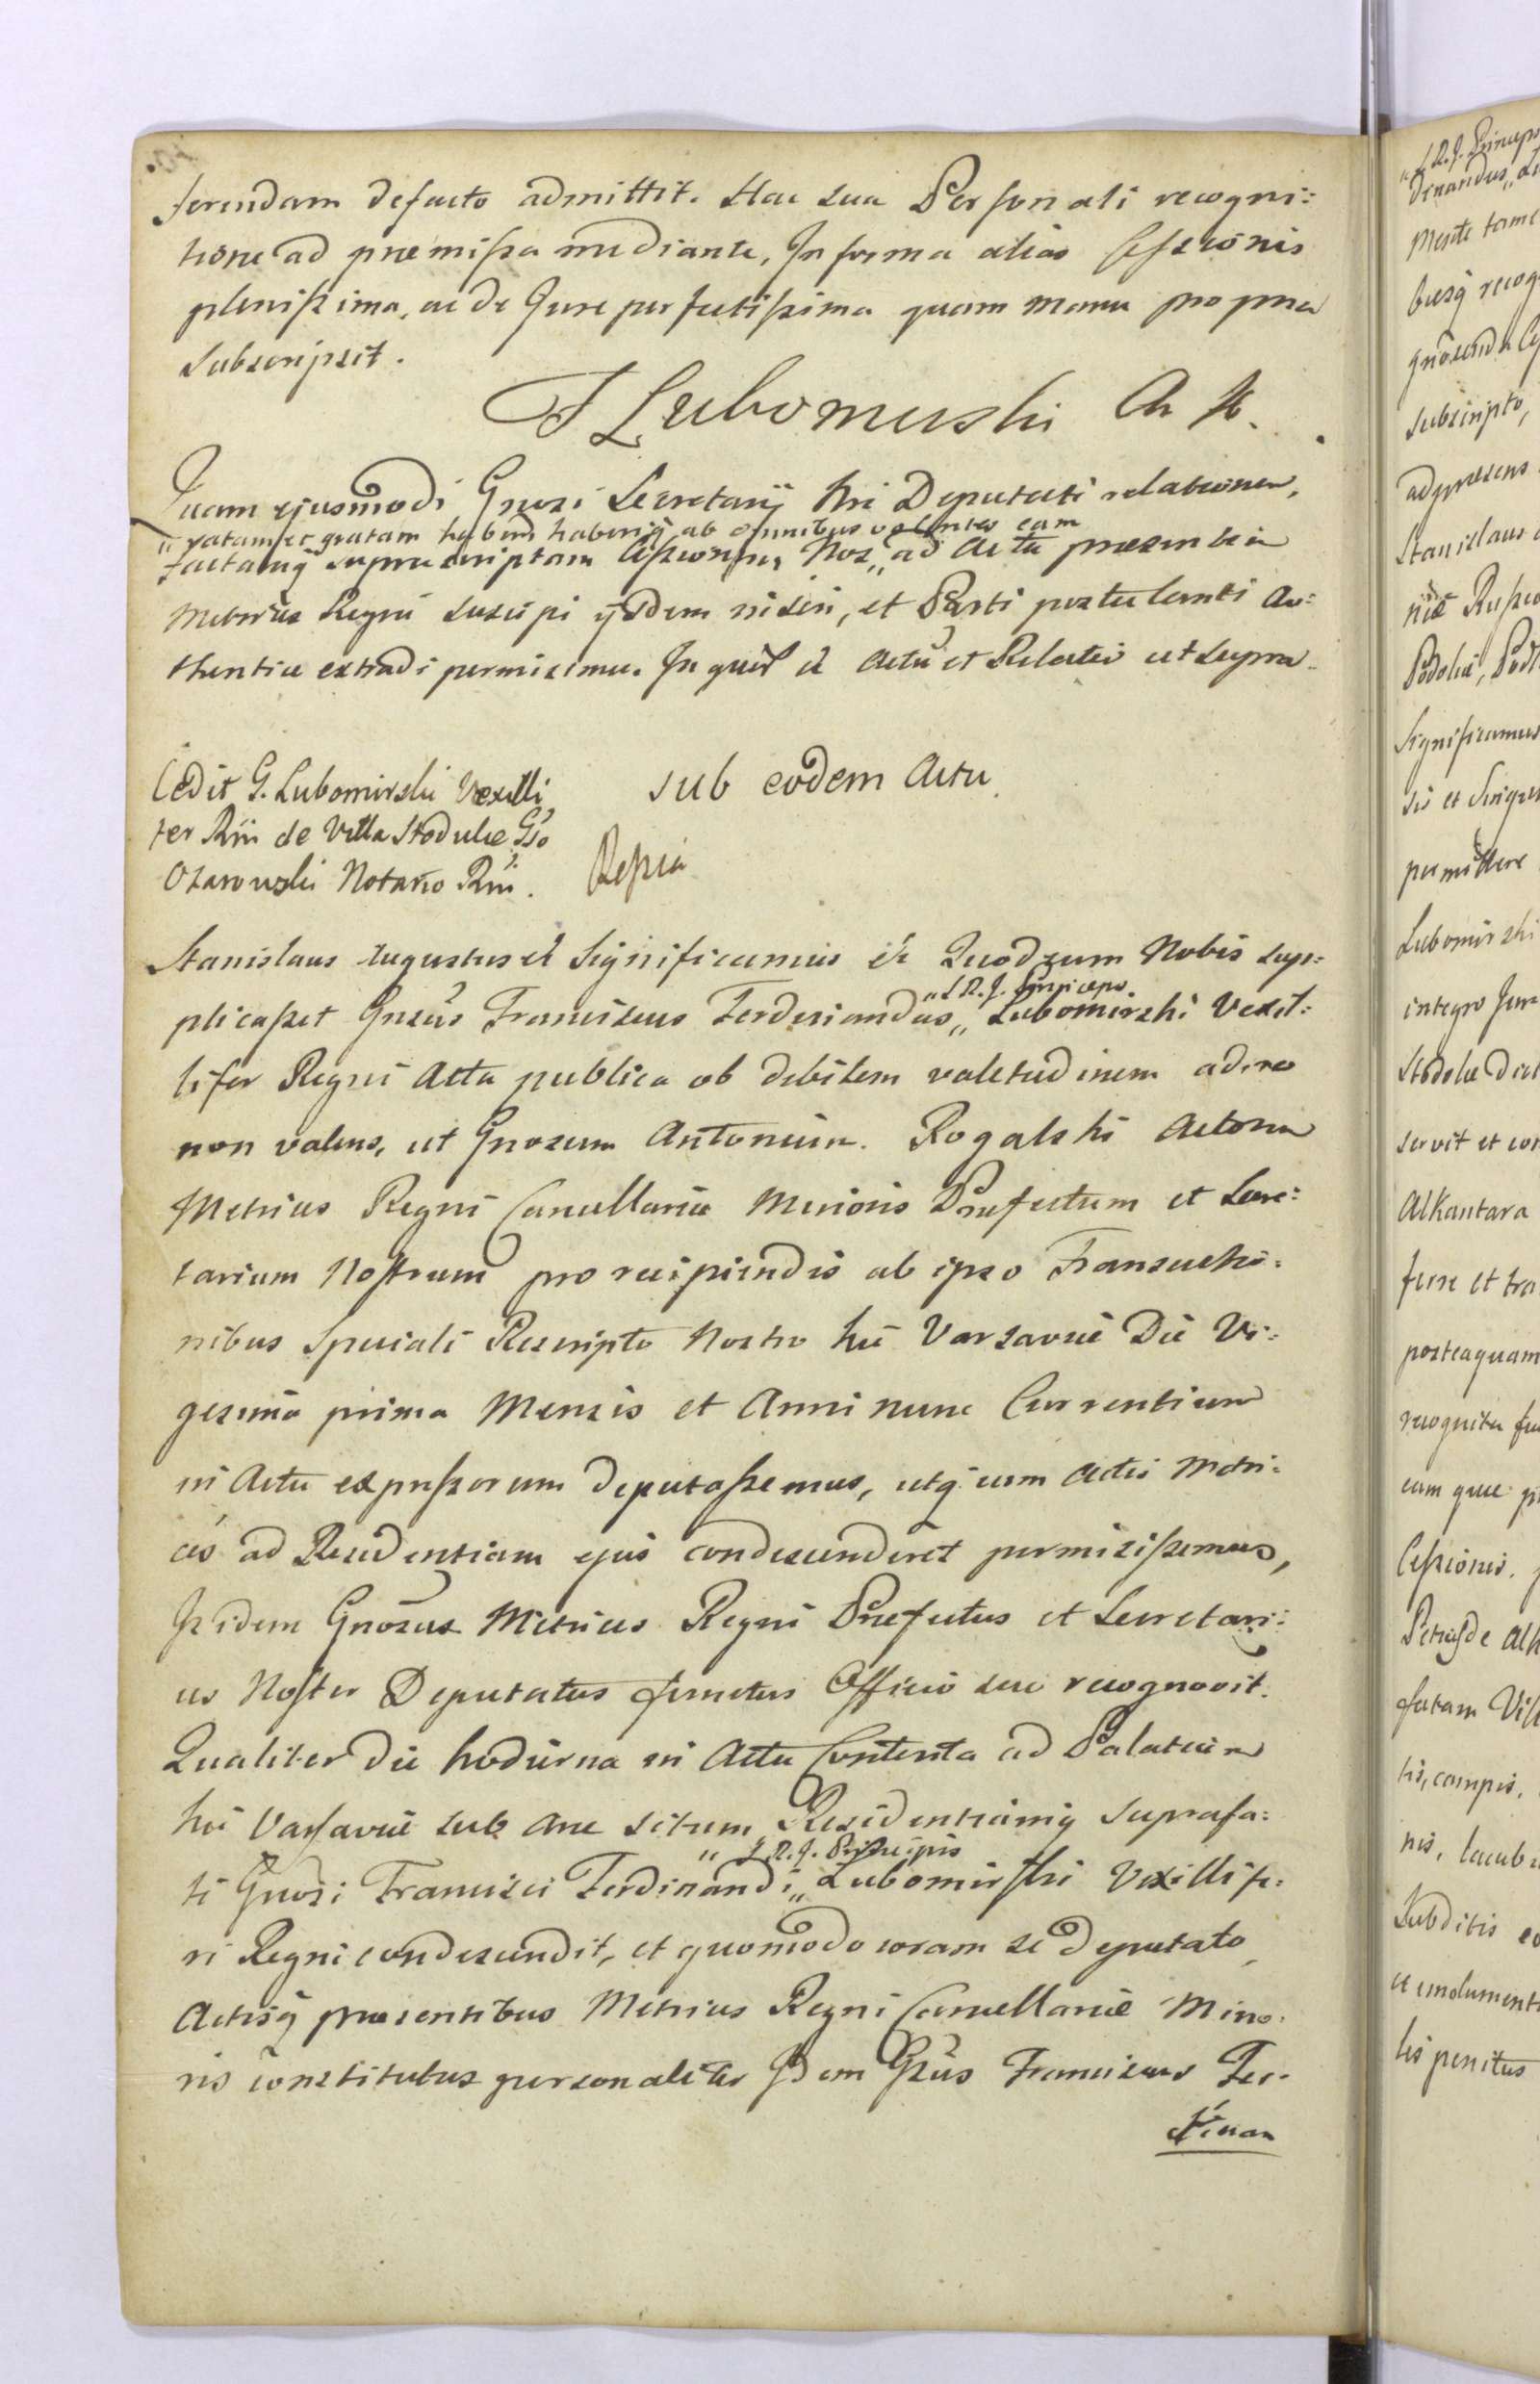 ferendam defacto admittit. Hac sua Personali recogni:
tione ad præmissa mediante, In forma alias Cessionis
plenissima, ac de Jure perfectissima quam manu propria
Subscripsit.
F Lubomirski Ch K.
Quam ejusmodi Gnosi Secretarij Nri Deputati relationem,
„ratam et gratam habend haberiq ab omnibus volentes eam
factamq suprascriptam Cessionem Nos „ ad Acta præsentia
Metrices Regni suscipi ijsdem inseri, et Parti postulanti Au:
thentice extradi permisimus. In quor & Actū et Relatio ut supra.
Cedit G. Lubomirski Vexilli
fer Rni de Villa Stodulce Gso
Ozarowski Notario Rni.
Sub eodem Actu
Ressia
Stanislaus Augustus & Significamus & Quod cum Nobis sup:
plicasset Gnsus Franciscus Ferdinandus „ Lubomirski Vexil:
„S.R.J. Princeps
lifer Regni Acta publica ob debilem valetudinem adire
non valens, ut Gnosum Antonium Rogalski Actorum
Metrices Regni Cancellariæ Minoris Præfectum et Secre:
tarium Nostrum pro recipiendis ab ipso Transactio:
nibus Speciali Rescripto Nostro hic Varsaviæ Die Vi:
gesima prima Mensis et Anni nunc Currentium
in Actu expressorum deputassemus, utq cum Actis Metri:
ces ad Residentiam ejus condescenderet permisissemus,
Isidem Gnosus Metrices Regni Præfectus et Secretari:
us Noster Deputatus functus Officio suo recognovit.
Qualiter die hodierna in Actu Contenta ad Palatium
hic Varsaviæ sub Arce situm Residentiamq suprafa:
ti Gnosi Francisci Ferdinandi „ Lubomirski Vexillife:
„ S.R.J. Principis
ri Regni condescendit, et quomodo coram se deputato,
Actisq præsentibus Metrices Regni Cancellariæ Mino:
ris constitutus personaliter Idem Gsus Franciscus Fer-
dinan
„S.R.J. Princeps
dinandus „ Lu
Mente tame
busq recog
gnoscende
Subscripto,
ad præsens
Stanislaus
niæ Russiæ
Podoliæ, Podl
Significamus
sis et Singul
permittere
Lubomirski
integro Jure
Stodolce dict
servit et con
Alkantara
fere et tra
posteaquam
recognita fu
eam quæ
Cessionis.
Petrus de Alk
fatam Vil
tis, campis,
nis, lacub
Subditis
et emolument
lis penitus